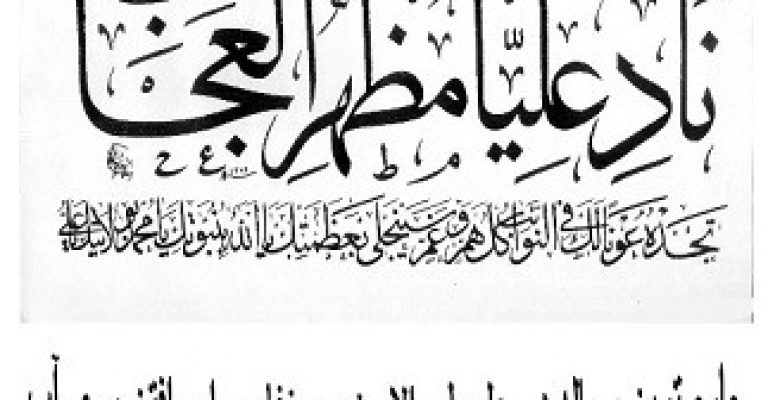 نَادِ عَلِيًّا مَظْهَرَ الْعَجَائِبِ
تَجِدْهُ عَوْنًا لَكَ فِي النَّوَائِبِ كُلُّ هَمٍّ وَغَمٍّ سَيَنْجَلِي بِعَظَمَتِكَ يَا اللهُ بِنُبُوَّتِكَ يَا مُحَمَّدُ بِوَلَايَتِكَ يَا عَلِيُّ